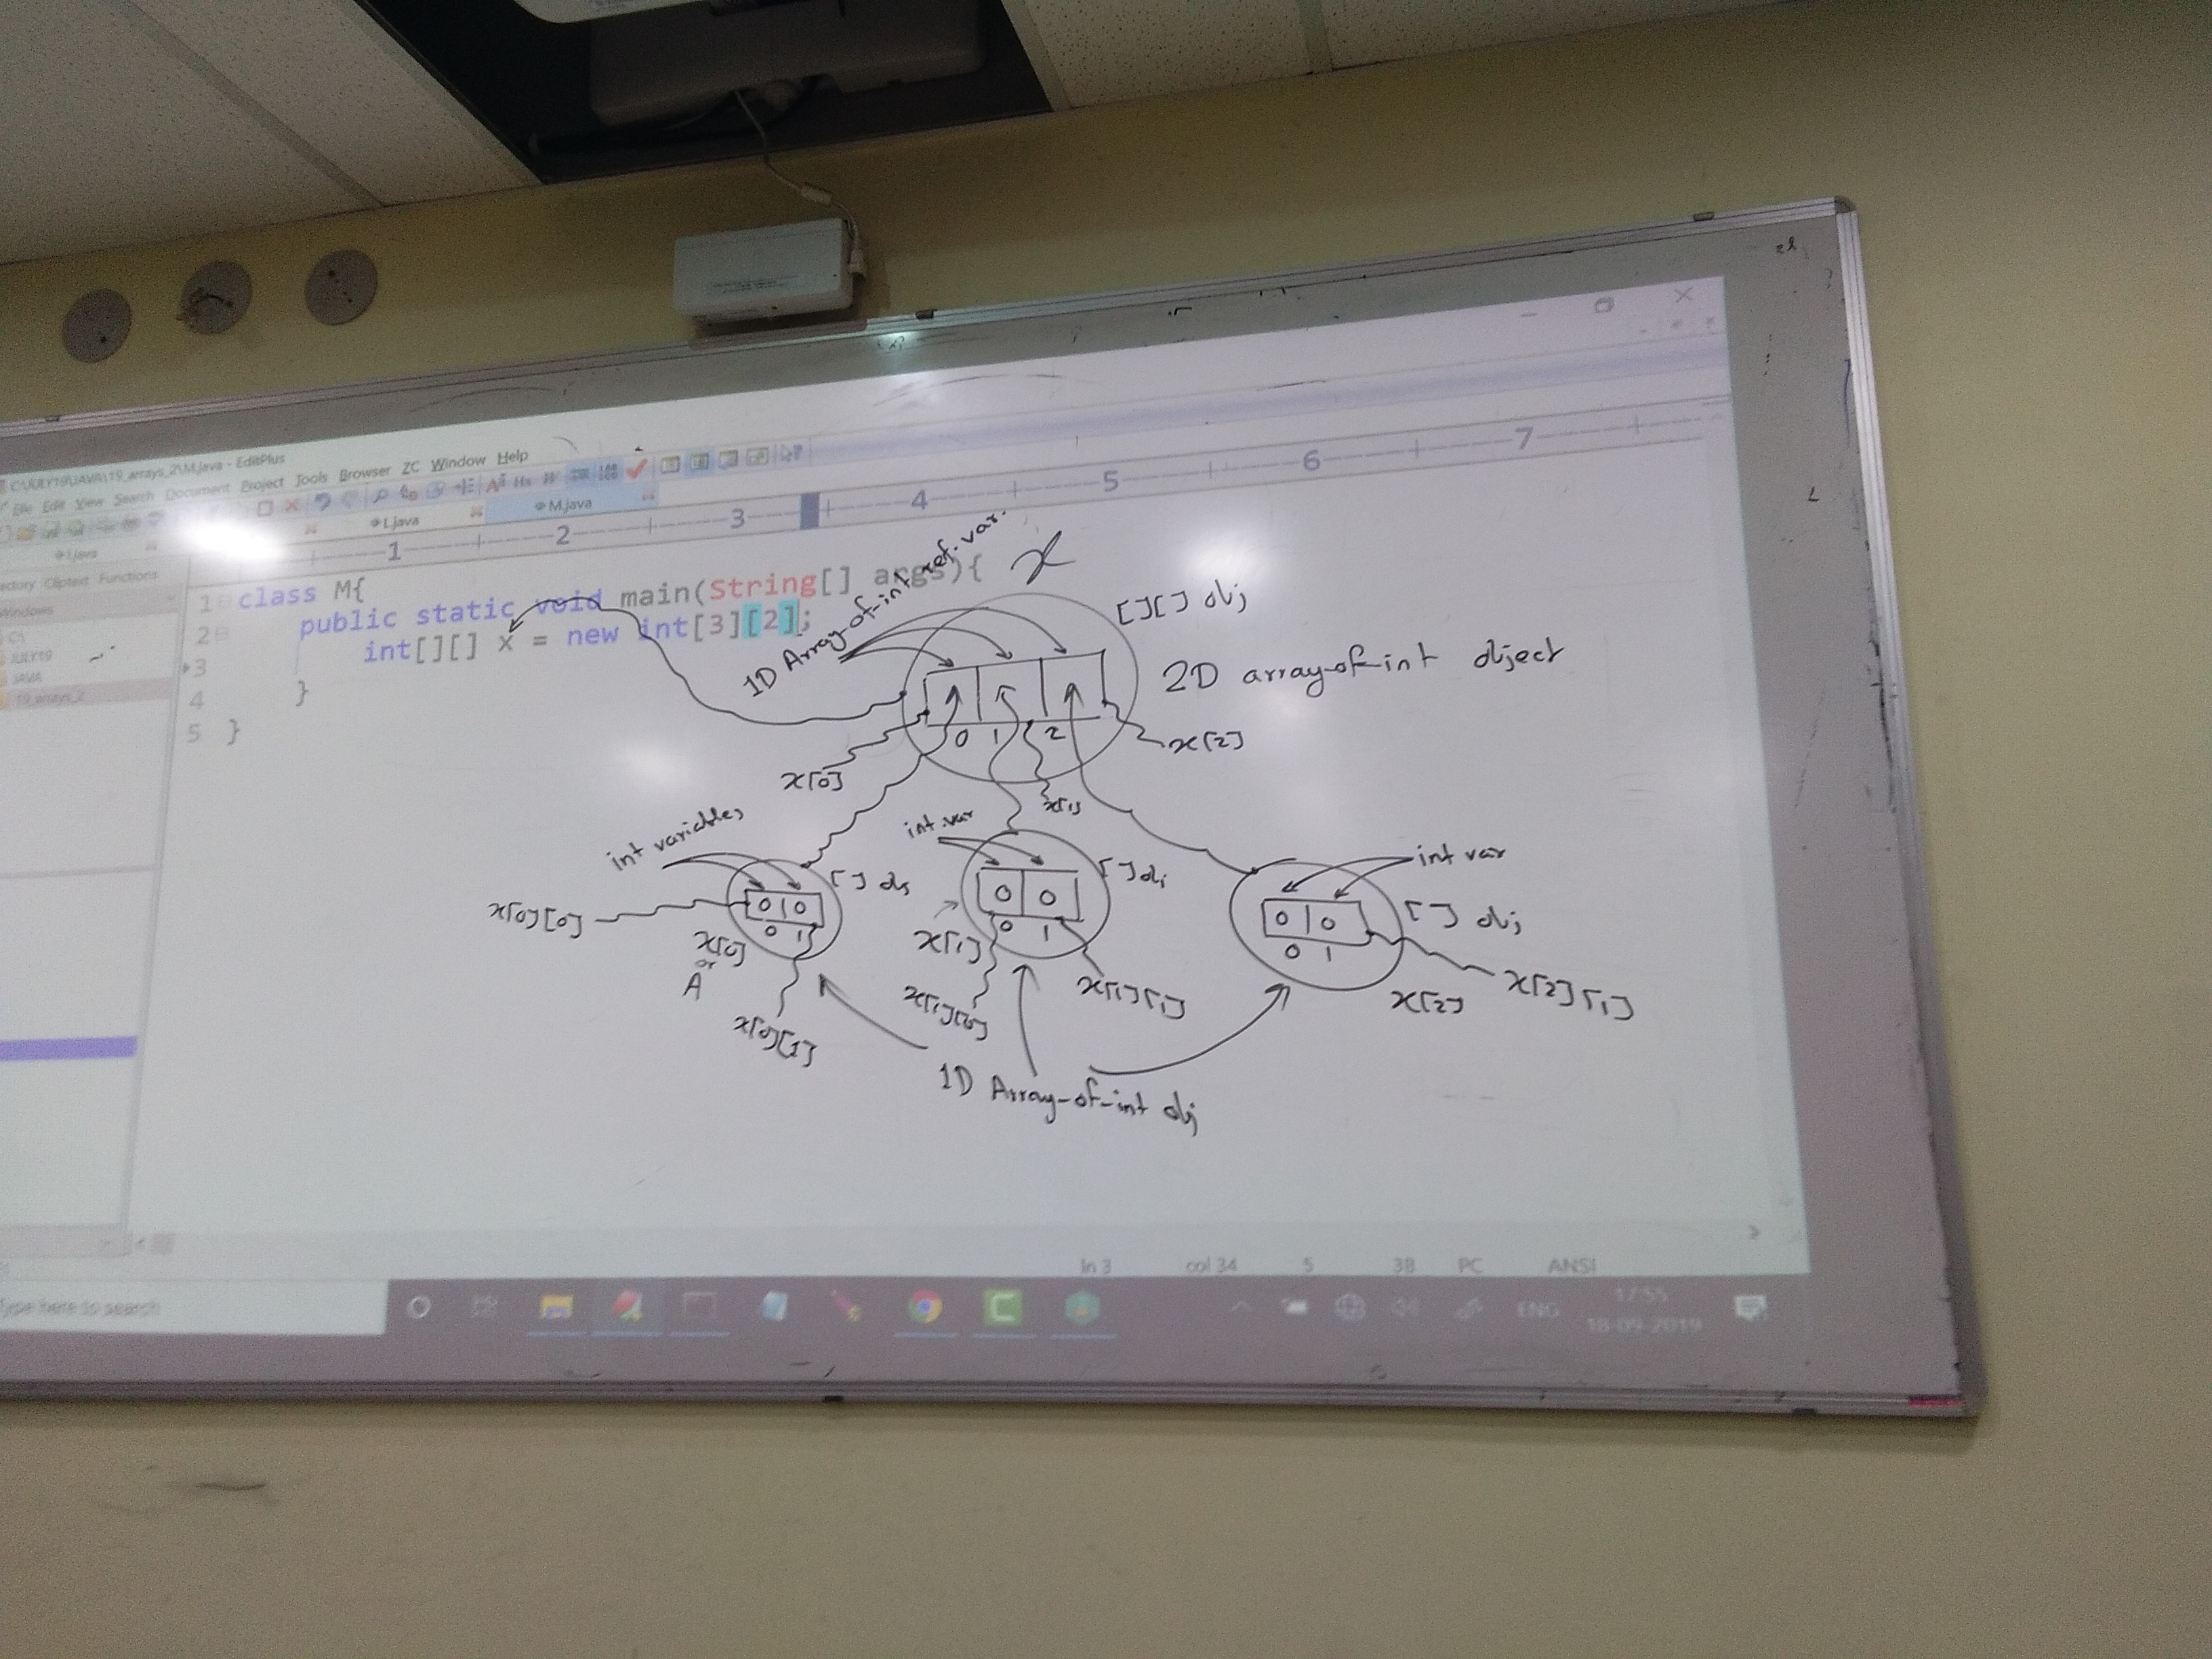 C:\JULY19\JAVA\19_arrays_2\M.java - EditPlus
File Edit View Search Document Project Tools Browser ZC Window Help
I.java L.java M.java
1 2 3 4 5 6 7
Cliptext Functions
Windows
C:\
JULY19
JAVA
19_arrays_2
1 class M{
2 public static void main(String[] args){
3 int[][] x = new int[3][2];
4 }
5 }
x
1D Array-of-int ref. var.
[][] obj
2D array-of-int object
0 1 2
x[0]
x[1]
x[2]
int variables
int var
int var
[] obj
[] obj
[] obj
0 0
0 0
0 0
0 1
0 1
0 1
x[0][0]
x[0]
or
A
x[0][1]
x[1]
x[1][0]
x[1][1]
x[2]
x[2][1]
1D Array-of-int obj
ln 3 col 34 5 38 PC ANSI
Type here to search
ENG
17:55
18-09-2019